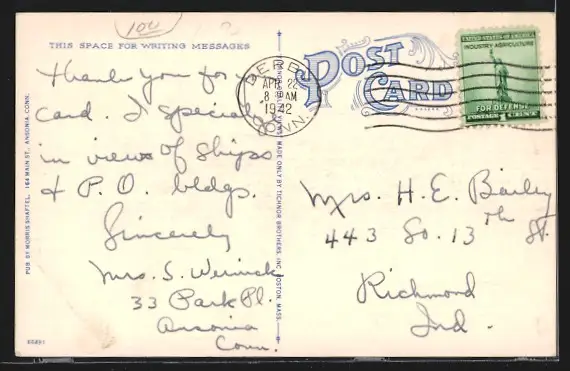 100
THIS SPACE FOR WRITING MESSAGES
Thank you for
card. I specialize
in views of ships
& P. O. bldgs.
Sincerely
Mrs. S. Wernick
33 Park Pl.
Ansonia
Conn.
PUB. BY MORRIS SHAFTEL, 164 MAIN ST., ANSONIA, CONN.
MADE ONLY BY TICHNOR BROTHERS, INC. BOSTON, MASS.
POST
CARD
DERBY
APR 22
8 AM
1942
CONN.
UNITED STATES OF AMERICA
INDUSTRY AGRICULTURE
FOR DEFENSE
POSTAGE 1 CENT
Mrs. H. E. Bailey
443 So. 13th St.
Richmond
Ind.